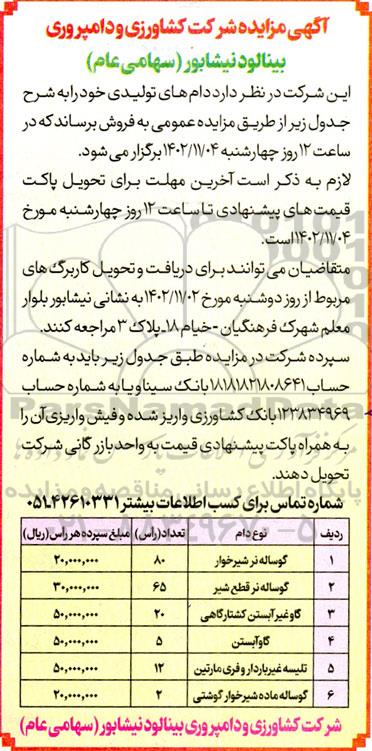 آگهی مزایده شرکت کشاورزی و دامپروری
بینالود نیشابور (سهامی عام)
این شرکت در نظر دارد دام های تولیدی خود را به شرح
جدول زیر از طریق مزایده عمومی به فروش برساند که در
ساعت ۱۲ روز چهارشنبه ۱۴۰۲/۱۱/۰۴ برگزار می شود.
لازم به ذکر است آخرین مهلت برای تحویل پاکت
قیمت های پیشنهادی تا ساعت ۱۲ روز چهارشنبه مورخ
۱۴۰۲/۱۱/۰۴ است.
متقاضیان می توانند برای دریافت و تحویل کاربرگ های
مربوط از روز دوشنبه مورخ ۱۴۰۲/۱۱/۰۲ به نشانی نیشابور بلوار
معلم شهرک فرهنگیان - خیام ۱۸ـ پلاک ۳ مراجعه کنند.
سپرده شرکت در مزایده طبق جدول زیر باید به شماره
حساب ۱۸۱۸۱۸۲۱۸۰۸۶۴۱ بانک سینا و یا به شماره حساب
۱۲۳۸۳۴۹۶۹ بانک کشاورزی واریز شده و فیش واریزی آن را
به همراه پاکت پیشنهادی قیمت به واحد بازرگانی شرکت
تحویل دهند.
شماره تماس برای کسب اطلاعات بیشتر ۰۵۱ـ۴۲۶۱۰۳۳۱
ردیف نوع دام تعداد (راس) مبلغ سپرده هر راس (ریال)
۱ گوساله نر شیرخوار ۸۰ ۲۰,۰۰۰,۰۰۰
۲ گوساله نر قطع شیر ۶۵ ۳۰,۰۰۰,۰۰۰
۳ گاو غیر آبستن کشتارگاهی ۲۰ ۵۰,۰۰۰,۰۰۰
۴ گاو آبستن ۵ ۵۰,۰۰۰,۰۰۰
۵ تلیسه غیر باردار و فری مارتین ۱۲ ۵۰,۰۰۰,۰۰۰
۶ گوساله ماده شیرخوار گوشتی ۲ ۲۰,۰۰۰,۰۰۰
شرکت کشاورزی و دامپروری بینالود نیشابور (سهامی عام)